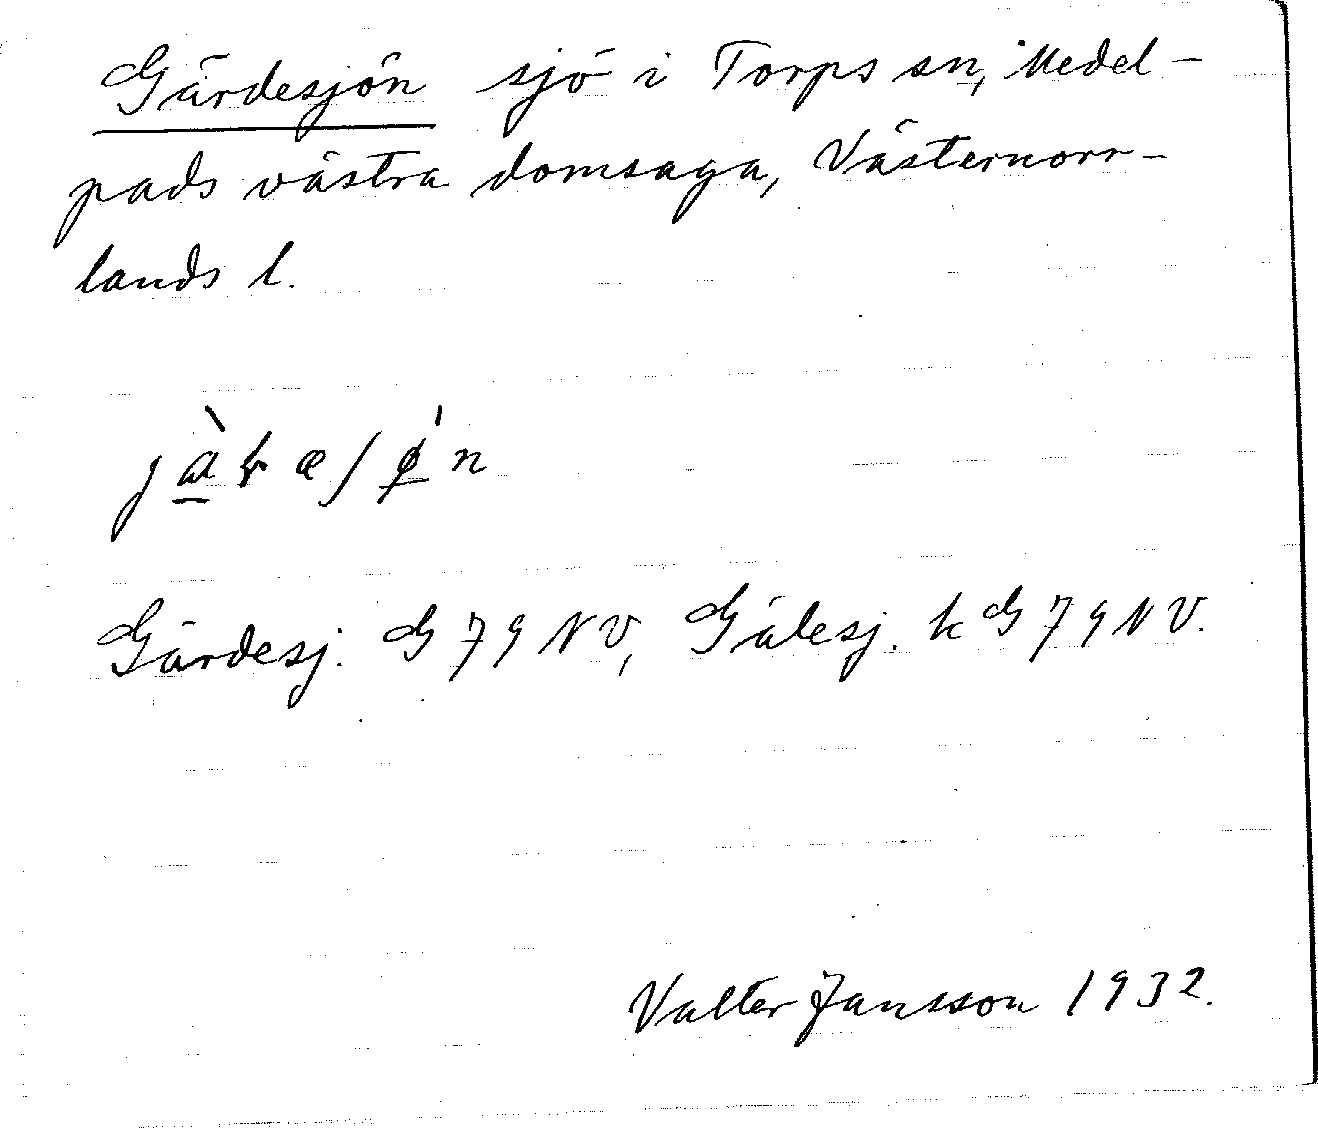 Gärdesjön sjö i Torps sn, Medel-
pads västra domsaga, Västernorr-
lands l.
Gärdesj. G 79 NV, Gälesj. k G 79 NV.
Valter Jansson 1932.